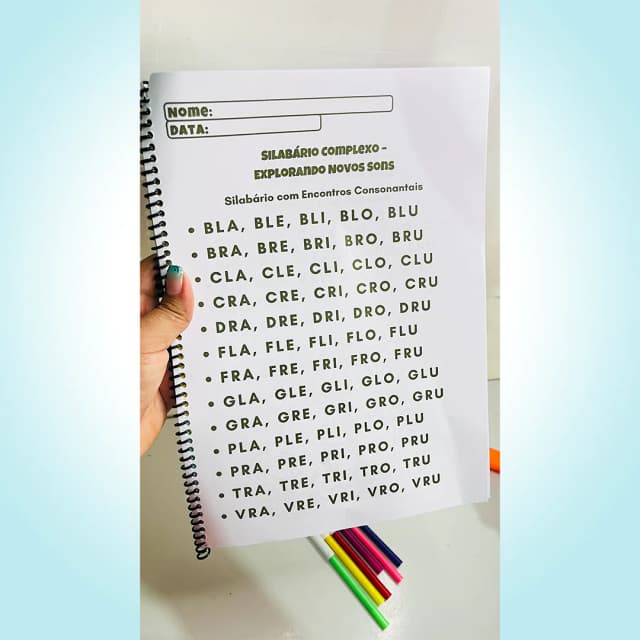 Nome:
DATA:
SILABÁRIO COMPLEXO –
EXPLORANDO NOVOS SONS
Silabário com Encontros Consonantais
• BLA, BLE, BLI, BLO, BLU
• BRA, BRE, BRI, BRO, BRU
• CLA, CLE, CLI, CLO, CLU
• CRA, CRE, CRI, CRO, CRU
• DRA, DRE, DRI, DRO, DRU
• FLA, FLE, FLI, FLO, FLU
• FRA, FRE, FRI, FRO, FRU
• GLA, GLE, GLI, GLO, GLU
• GRA, GRE, GRI, GRO, GRU
• PLA, PLE, PLI, PLO, PLU
• PRA, PRE, PRI, PRO, PRU
• TRA, TRE, TRI, TRO, TRU
• VRA, VRE, VRI, VRO, VRU